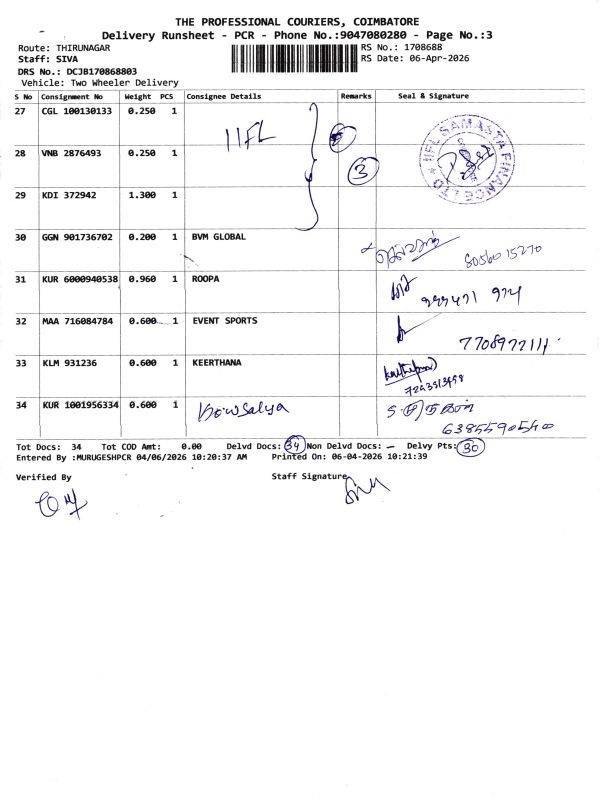 THE PROFESSIONAL COURIERS, COIMBATORE
Delivery Runsheet - PCR - Phone No.:9047080280 - Page No.:3
Route: THIRUNAGAR
RS No.: 1708688
Staff: SIVA
RS Date: 06-Apr-2026
DRS No.: DCJB170868803
Vehicle: Two Wheeler Delivery
S No Consignment No Weight PCS Consignee Details Remarks Seal & Signature
27 CGL 100130133 0.250 1
IIFL
IIFL SAMASTA FINANCE LTD
28 VNB 2876493 0.250 1
3
29 KDI 372942 1.300 1
30 GGN 901736702 0.200 1 BVM GLOBAL
8056015270
31 KUR 6000940538 0.960 1 ROOPA
32 MAA 716084784 0.600 1 EVENT SPORTS
33 KLM 931236 0.600 1 KEERTHANA
34 KUR 1001956334 0.600 1 Kowsalya
6385590540
Tot Docs: 34 Tot COD Amt: 0.00 Delvd Docs: 34 Non Delvd Docs: - Delvy Pts: 30
Entered By :MURUGESHPCR 04/06/2026 10:20:37 AM Printed On: 06-04-2026 10:21:39
Verified By Staff Signature